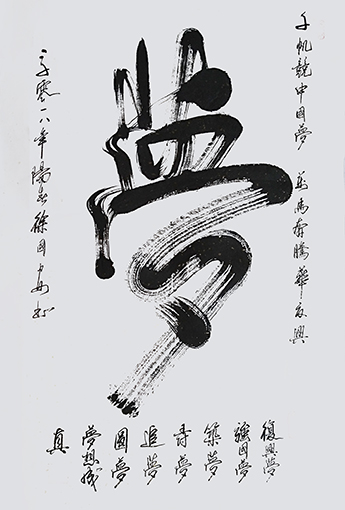 千帆競中国夢 萬馬奔騰華夏興
夢
復興夢
強国夢
築夢
尋夢
追夢
圓夢
夢想成
真
二零一八年陽春徐国安书